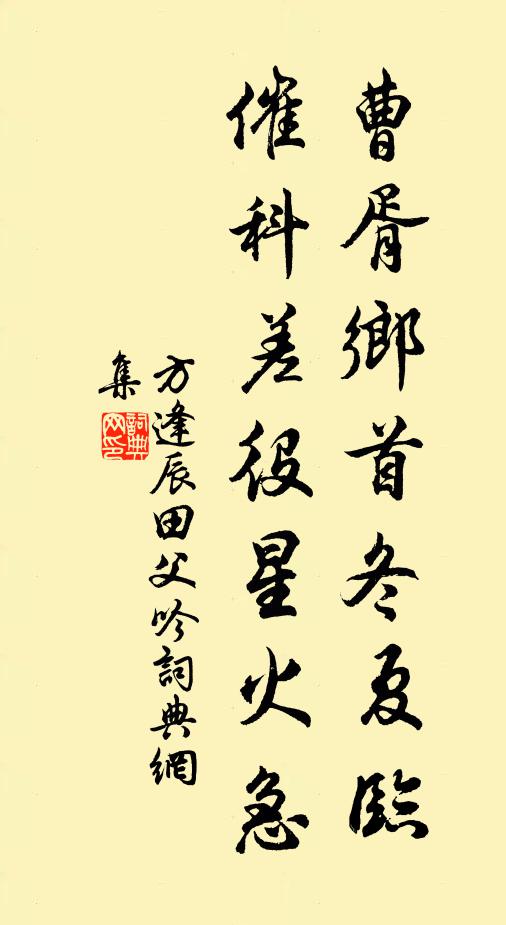 曹胥鄉首冬夏臨
催科差役星火急
方逢辰田父吟詞典網
集
詞典
网印